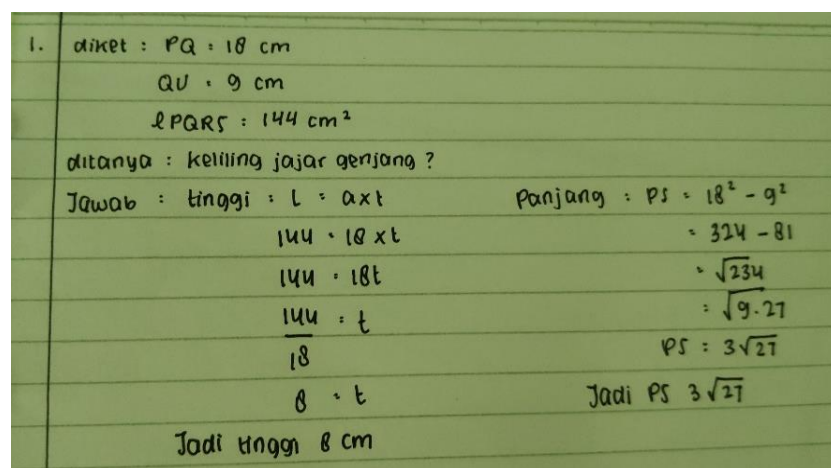 1. diket : PQ : 18 cm
QU : 9 cm
l PQRS : 144 cm²
ditanya : keliling jajar genjang ?
Jawab : tinggi : L : axt
144 : 18 xt
144 : 18t
144 : t
18
8 : t
Jadi tinggi 8 cm
Panjang : PS = 18² - 9²
= 324 - 81
= √234
= √9.27
PS : 3√27
Jadi PS 3√27